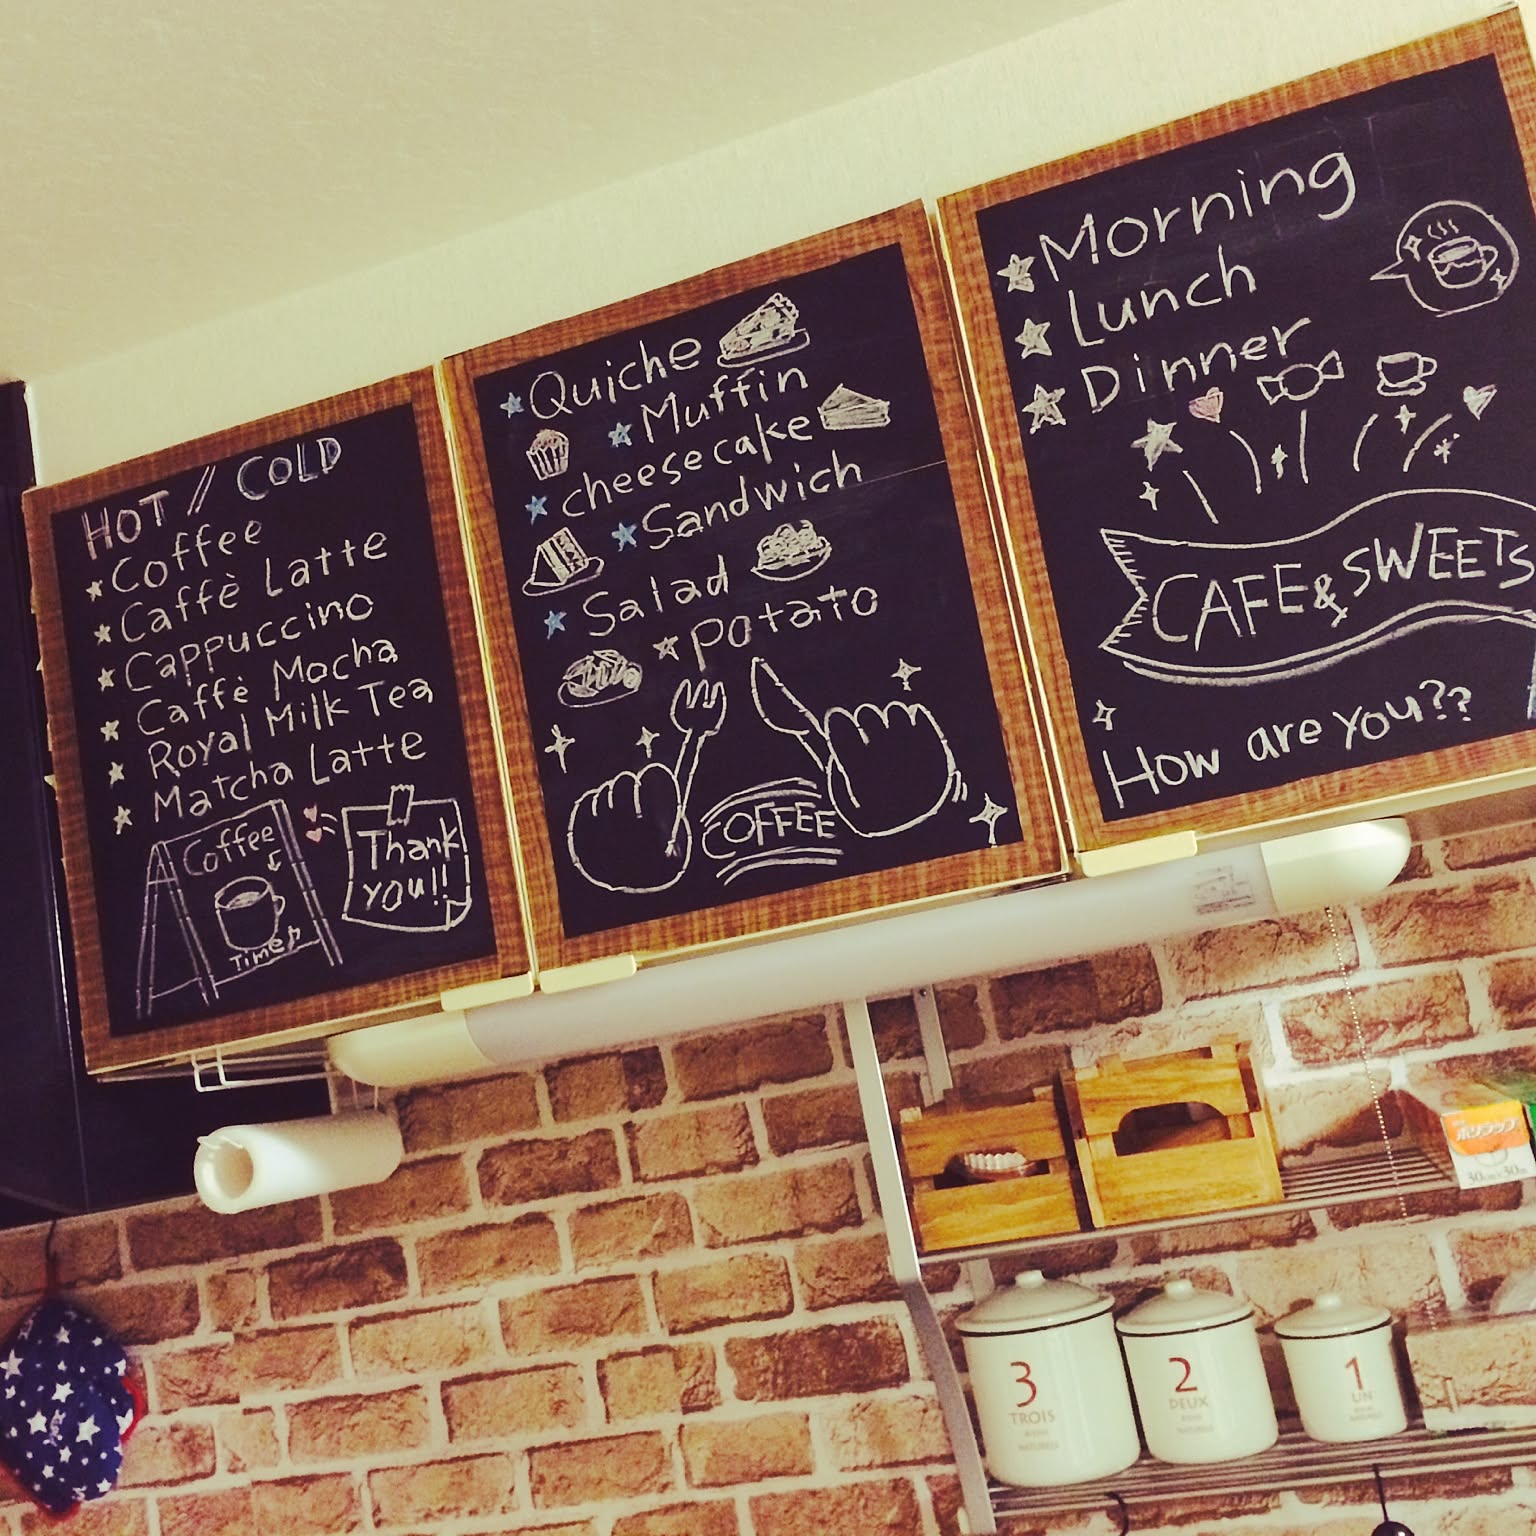 HOT // COLD
Coffee
Caffè Latte
Cappuccino
Caffè Mocha
Royal Milk Tea
Matcha Latte
Coffee
Time
Thank
you!!
Quiche
Muffin
cheesecake
Sandwich
Salad
potato
COFFEE
Morning
Lunch
Dinner
CAFE & SWEETS
How are you??
ポリラップ
30cm×30m
3
TROIS
2
DEUX
1
UN